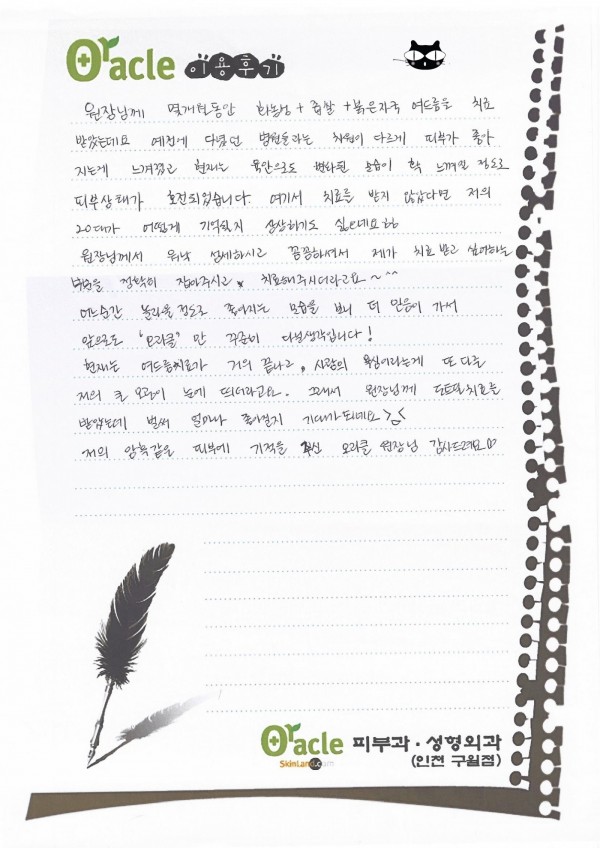 Oracle 이용후기
원장님께 몇개월동안 화농성 + 좁쌀 + 붉은자국 여드름을 치료
받았는데요 예전에 다녔던 병원들과는 차원이 다르게 피부가 좋아
지는게 느껴졌고 현재는 육안으로도 변화된 모습이 확 느껴질 정도로
피부상태가 호전되었습니다. 여기서 치료를 받지 않았다면 저의
20대가 어떻게 기억될지 상상하기도 싫은데요ㅎㅎ
원장님께서 워낙 섬세하시고 꼼꼼하셔서 제가 치료 받고 싶어하는
을 정확히 잡아주시고, 치료해주시더라고요~^^
어느순간 놀라울 정도로 좋아지는 모습을 보니 더 믿음이 가서
앞으로도 '오라클' 만 꾸준히 다닐생각입니다!
현재는 여드름치료가 거의 끝나고, 사람의 욕심이라는게 또 다른
저의 큰 모공이 눈에 띄더라고요. 그래서 원장님께 도트필치료를
받았는데 벌써 얼마나 좋아질지 기대가되네요 >_<
저의 암흑같은 피부에 기적을 주신 오라클 원장님 감사드려요♡
Oracle 피부과·성형외과
SkinLand.com (인천 구월점)